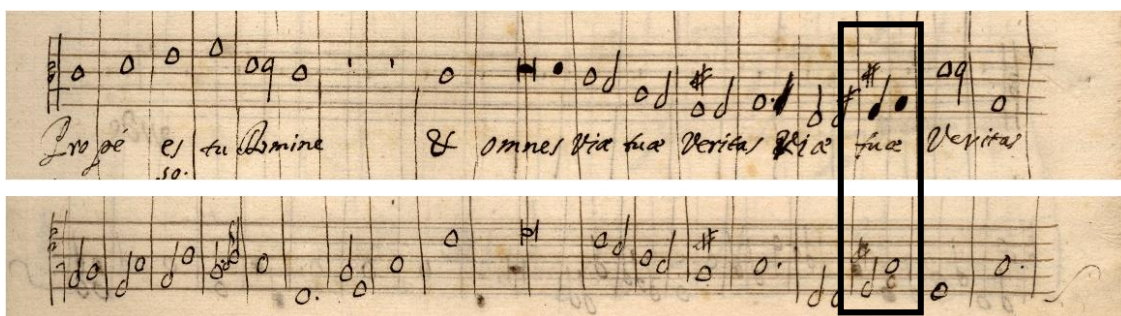 Propé es tu Domine & omnes Viæ tuæ Veritas Viæ tuæ Veritas
so.